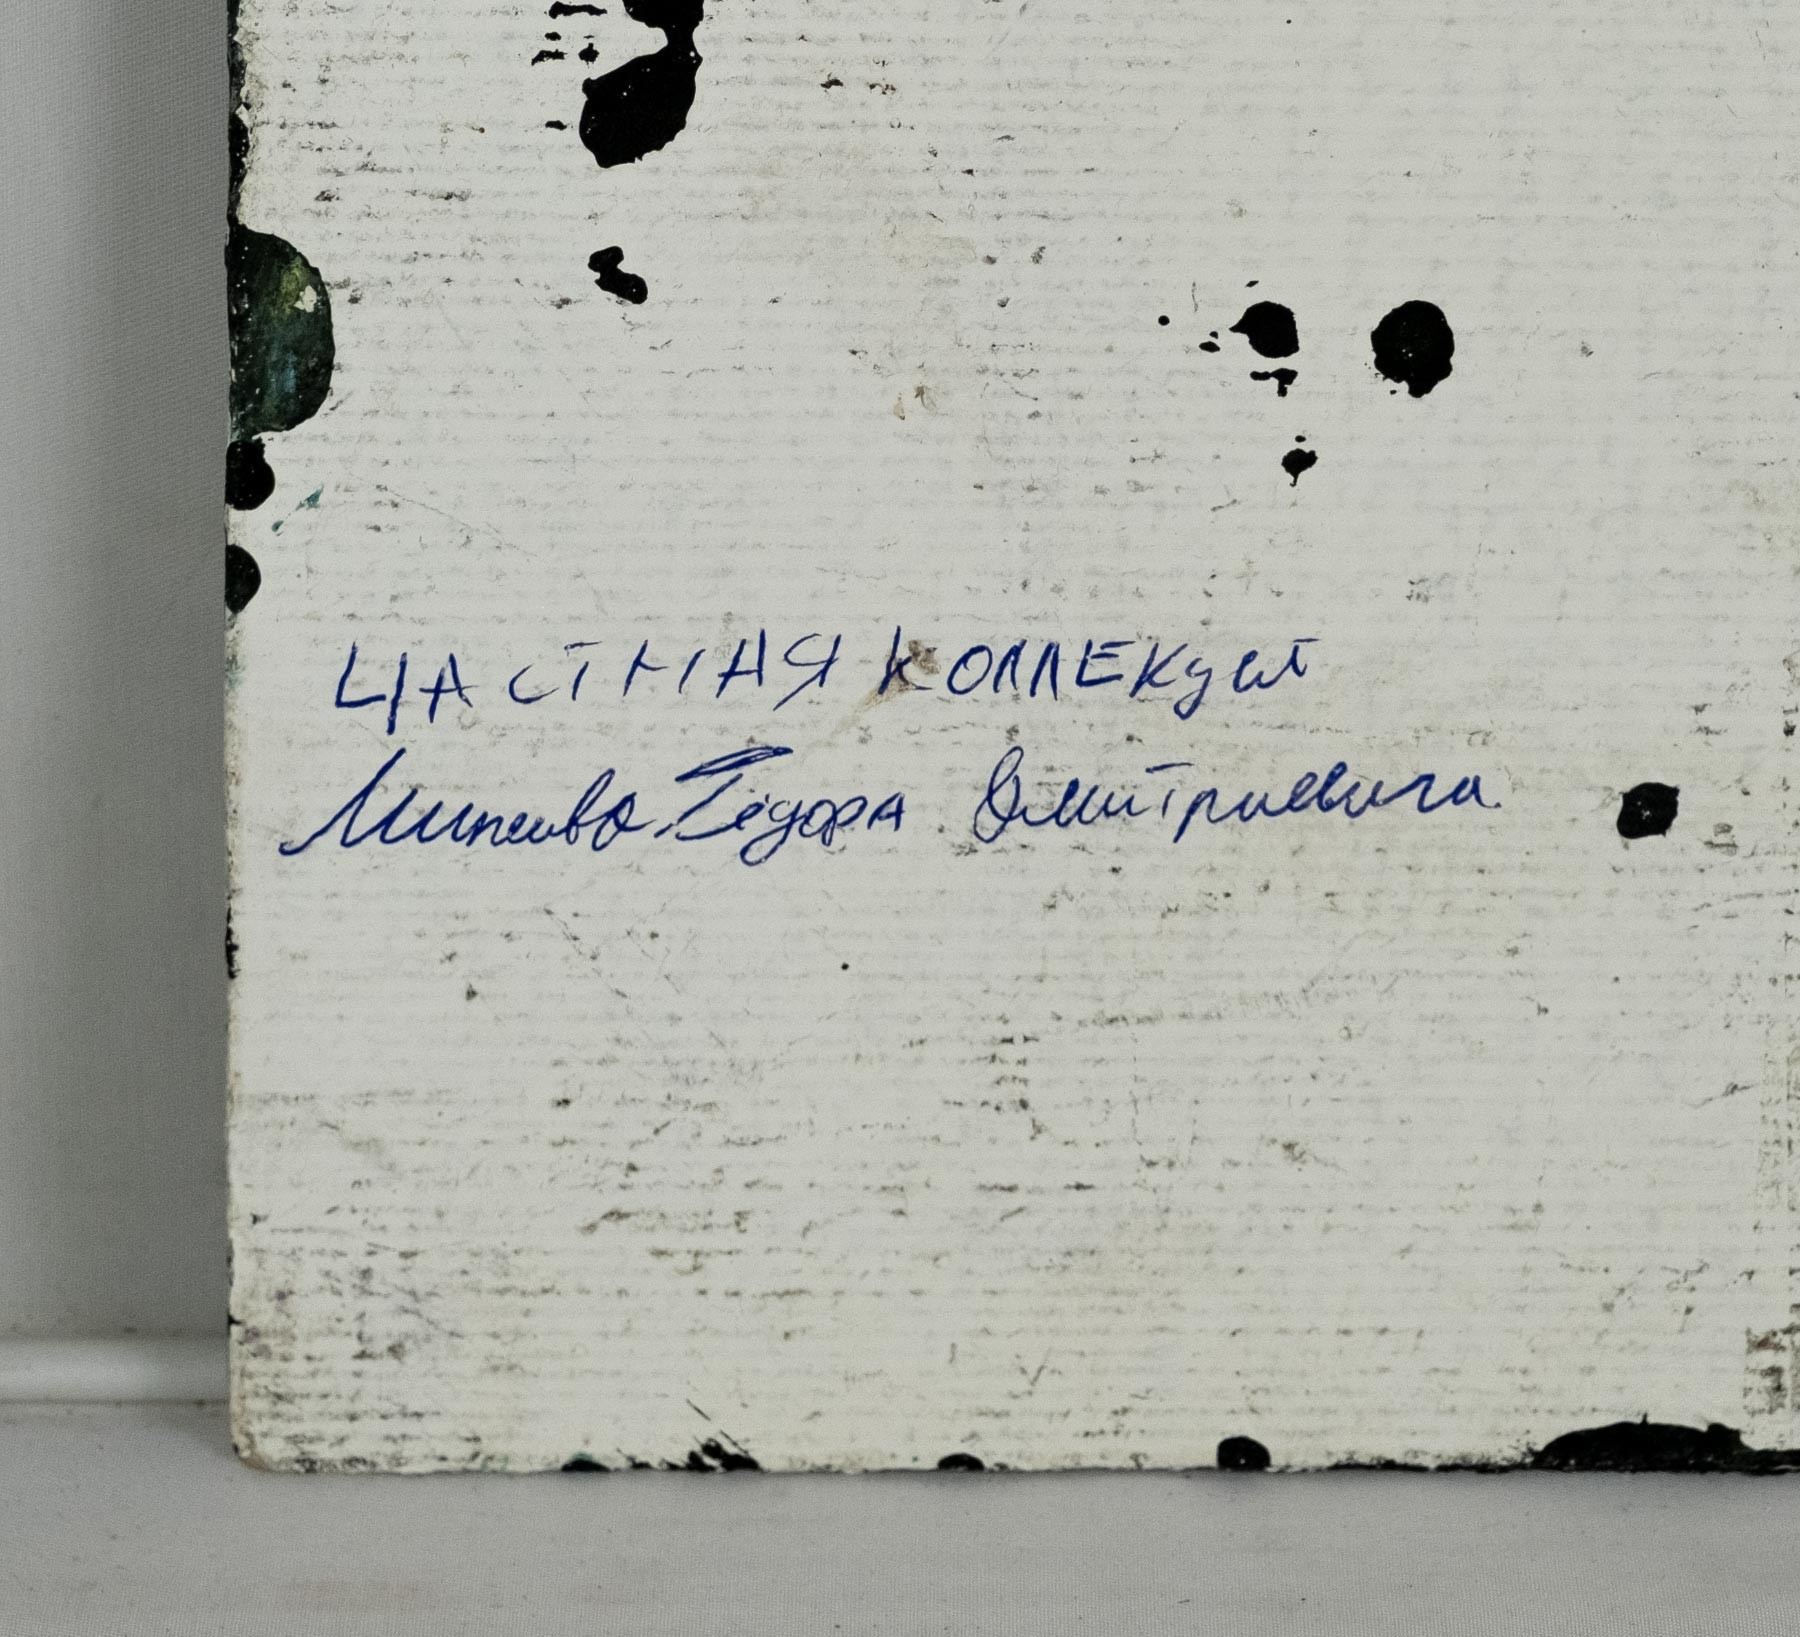 ЧАСТНАЯ КОЛЛЕКЦИЯ
Фёдора Дмитриевича